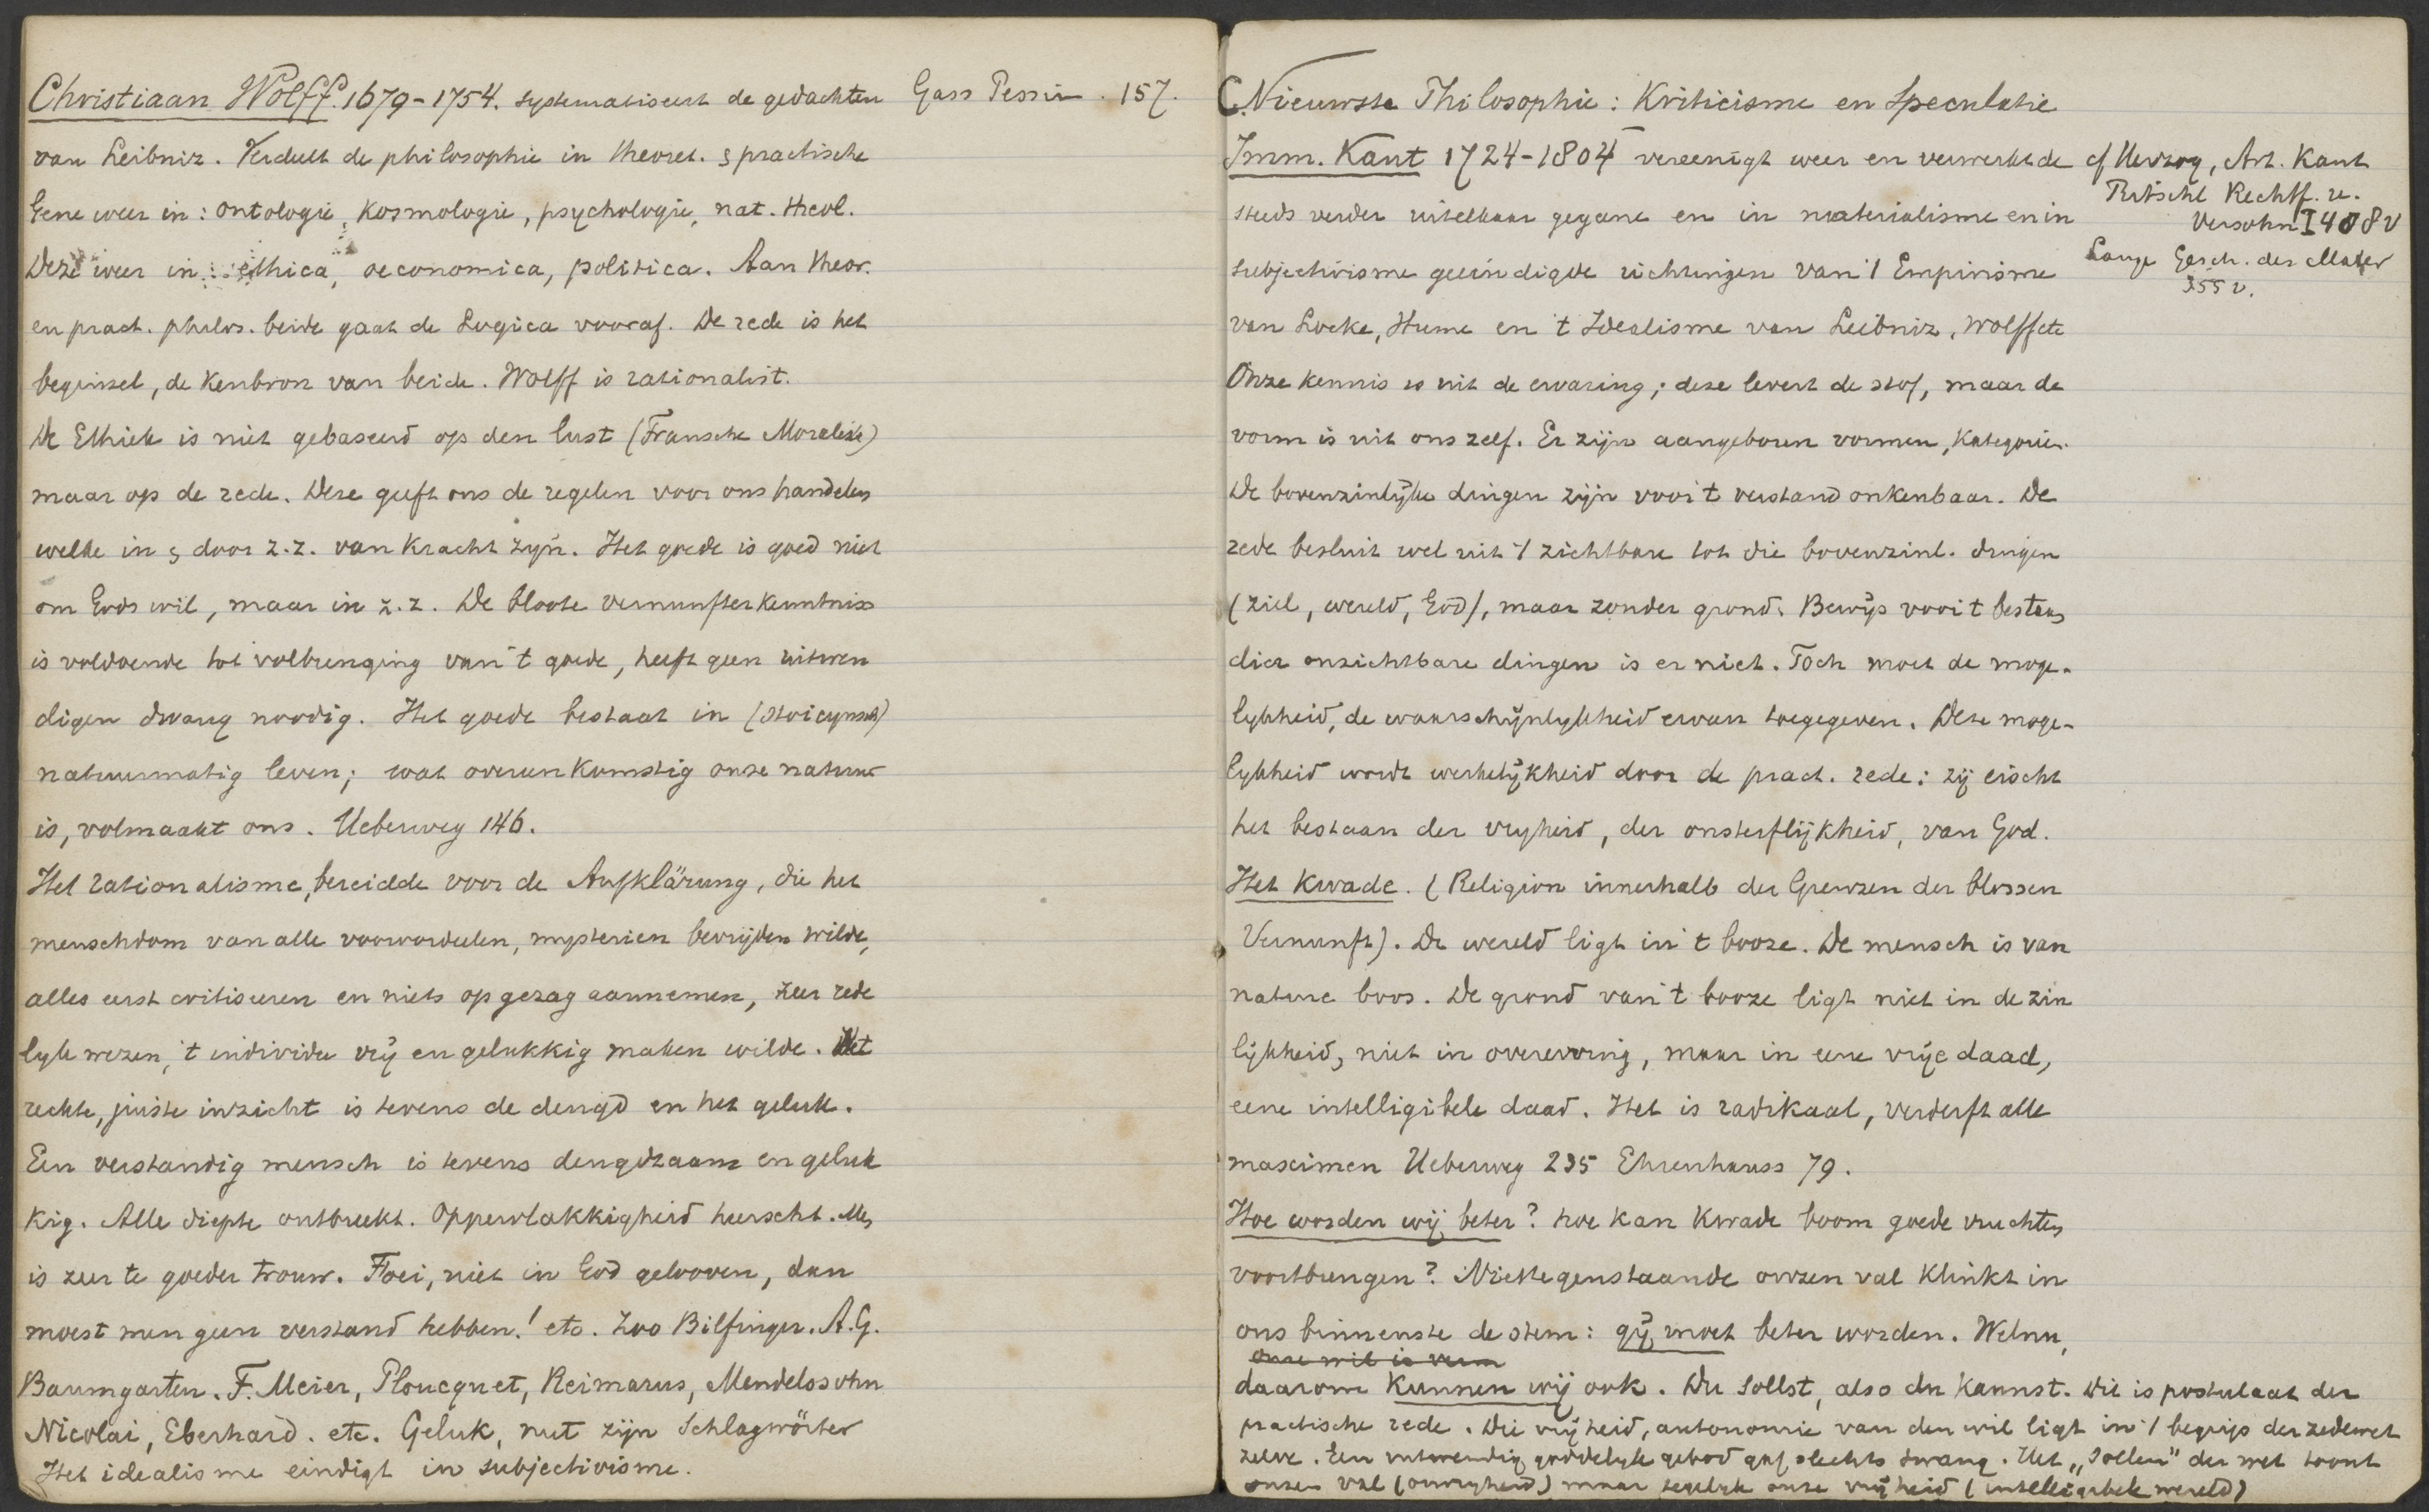 Christiaan Wolff. 1679-1754. systematiseert de gedachten
van Leibniz. Verdeelt de philosophie in theoret. & practische
Gene weer in: ontologie, kosmologie, psychologie, nat. theol.
Deze weer in: ethica, oeconomica, politica. Aan theor.
en pract. philos. beide gaat de Logica vooraf. De rede is het
beginsel, de kenbron van beide. Wolff is rationalist.
De Ethiek is niet gebaseerd op den lust (Fransche Moralisten)
maar op de rede. Deze geeft ons de regelen voor ons handelen
welke in & door z.z. van kracht zijn. Het goede is goed niet
om Gods wil, maar in z.z. De bloote Vernunfterkenntniss
is voldoende tot volbrenging van 't goede, heeft geen uitwen
digen dwang noodig. Het goede bestaat in (stoicynsch)
natuurmatig leven; wat overeenkomstig onze natuur
is, volmaakt ons. Ueberweg 146.
Het rationalisme, bereidde voor de Aufklärung, die het
menschdom van alle vooroordeelen, mysterien bevrijden wilde,
alles eerst critiseeren en niets op gezag aannemen, zeer rede
lijk wezen, 't individu vrij en gelukkig maken wilde. Het
rechte, juiste inzicht is tevens de deugd en het geluk.
Een verstandig mensch is tevens deugdzaam en geluk
kig. Alle diepte ontbreekt. Oppervlakkigheid heerscht. Alles
is zeer te goeder trouw. Foei, niet in God gelooven, dan
moest men geen verstand hebben! etc. Zoo Bilfinger. A.G.
Baumgarten. F. Meier, Ploucquet, Reimarus, Mendelssohn
Nicolai, Eberhard. etc. Geluk, nut zijn Schlagwörter
Het idealisme eindigt in subjectivisme.
Gass Pessim. 157.
C. Nieuwste Philosophie: Kriticisme en Speculatie
Imm. Kant 1724-1804 vereenigt weer en verwerkt de
steeds verder uitelkaar gegane en in materialisme en in
subjectivisme geëindigde richtingen van 't Empirisme
van Locke, Hume en 't Idealisme van Leibniz, Wolff etc
Onze kennis is uit de ervaring; deze levert de stof, maar de
vorm is uit ons zelf. Er zijn aangeboren vormen, kategorien.
De bovenzinlijke dingen zijn voor 't verstand onkenbaar. De
rede besluit wel uit 't zichtbare tot die bovenzinl. dingen
(ziel, wereld, God), maar zonder grond. Bewijs voor 't bestaan
dier onzichtbare dingen is er niet. Toch moet de moge-
lijkheid, de waarschijnlijkheid ervan toegegeven. Deze moge-
lijkheid wordt werkelijkheid door de pract. rede: zij eischt
het bestaan der vrijheid, der onsterflijkheid, van God.
Het Kwade. (Religion innerhalb der Grenzen der blossen
Vernunft). De wereld ligt in 't booze. De mensch is van
nature boos. De grond van 't booze ligt niet in de zin
lijkheid, niet in overerving, maar in eene vrije daad,
eene intelligibele daad. Het is radikaal, verderft alle
maximen Ueberweg 235 Ehrenhauss 79.
Hoe worden wij beter? hoe kan kwade boom goede vruchten
voortbrengen? Niettegenstaande onzen val klinkt in
ons binnenste de stem: gij moet beter worden. Welnu,
onze wil is
daarom kunnen wij ook. Du sollst, also du kannst. Dit is postulaat der
practische rede. Die vrijheid, autonomie van den wil ligt in 't begrip der zedewet
zelve. Een uitwendig goddelijk gebod gaf slechts dwang. Het „Sollen" der wet toont
onzen val (onvrijheid) maar tegelijk onze vrijheid (intelligibele wereld)
cf Herzog, Art. Kant
Ritschl Rechtf. u.
Versohn I 408 v
Lange Gesch. des Mater
355 v.